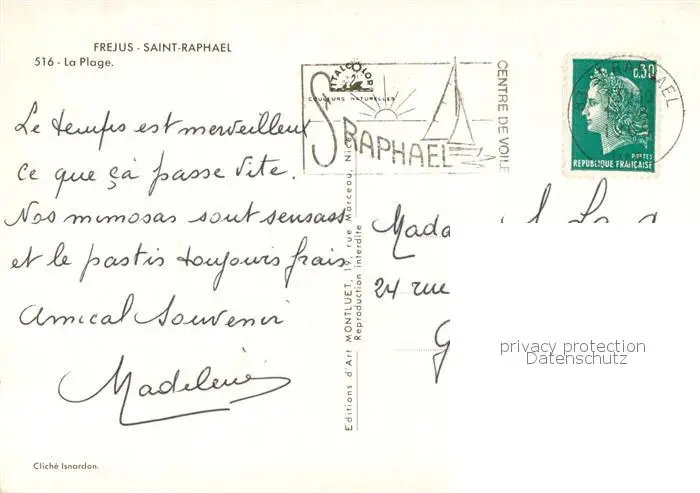 FREJUS - SAINT-RAPHAEL
516 - La Plage.
ITALCOLOR
COULEURS NATURELLES
St RAPHAEL
CENTRE DE VOILE
RAPHAEL
0,30
POSTES
REPUBLIQUE FRANÇAISE
Le temps est merveilleux
Ce que çà passe vite.
Nos mimosas sont sensass
et le pastis toujours frais
Amical Souvenir
Madeleine
Editions d'Art MONTLUET, rue Marceau, Nice
Reproduction interdite
Mada
24 rue
G
privacy protection
Datenschutz
Cliché Isnardon.